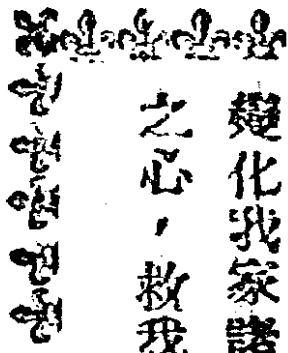 變化我家諸
之心，救我